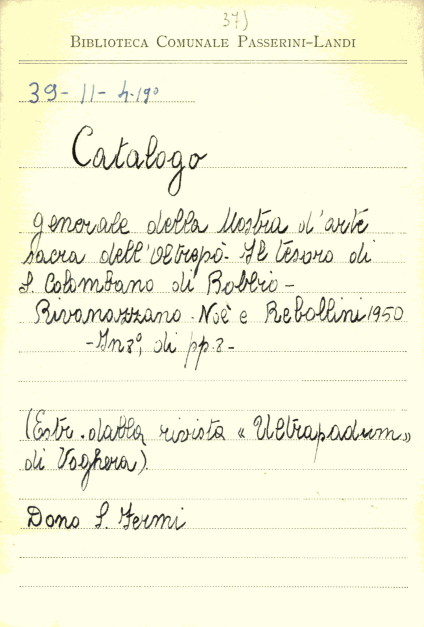 37)
BIBLIOTECA COMUNALE PASSERINI-LANDI
39- 11- 4.19°
Catalogo
generale della Mostra d'arte
sacra dell'Oltrepò. Il tesoro di
S. Colombano di Bobbio -
Rivanazzano. Noè e Rebollini 1950
-In 8°, di pp. 8-
(Estr. dalla rivista « Ultrapadum»
di Voghera).
Dono S. Fermi